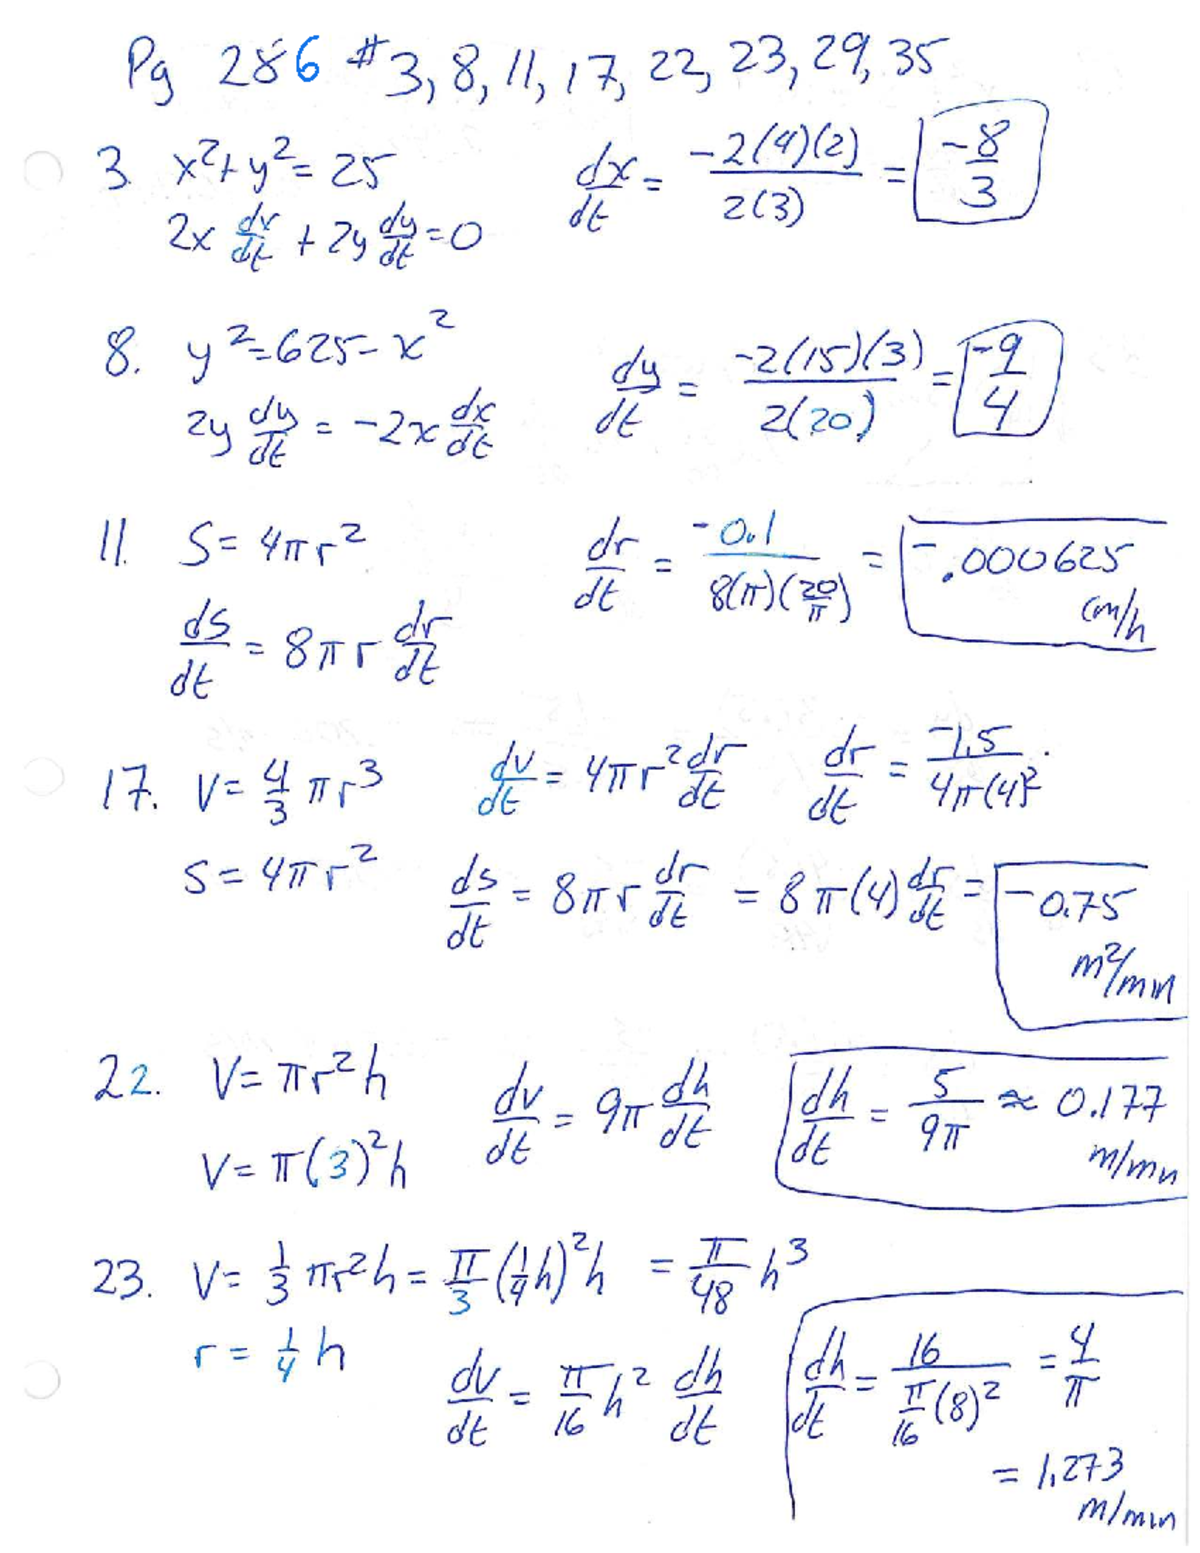 Pg 286 #3, 8, 11, 17, 22, 23, 29, 35
3. x²+y²=25 dx/dt = -2(4)(2)/2(3) = -8/3
2x dx/dt + 2y dy/dt = 0
8. y²=625-x² dy/dt = -2(15)(3)/2(20) = -9/4
2y dy/dt = -2x dx/dt
11. S=4πr² dr/dt = -0.1/8(π)(20/π) = -.000625 cm/h
ds/dt = 8πr dr/dt
17. V=4/3 πr³ dv/dt = 4πr² dr/dt dr/dt = -1.5/4π(4)²
S=4πr² ds/dt = 8πr dr/dt = 8π(4) dr/dt = -0.75 m²/min
22. V=πr²h dv/dt = 9π dh/dt dh/dt = 5/9π ≈ 0.177 m/min
V=π(3)²h
23. V= 1/3 πr²h = π/3 (1/4h)²h = π/48 h³
r = 1/4 h dv/dt = π/16 h² dh/dt dh/dt = 16/π/16(8)² = 4/π
= 1.273
m/min